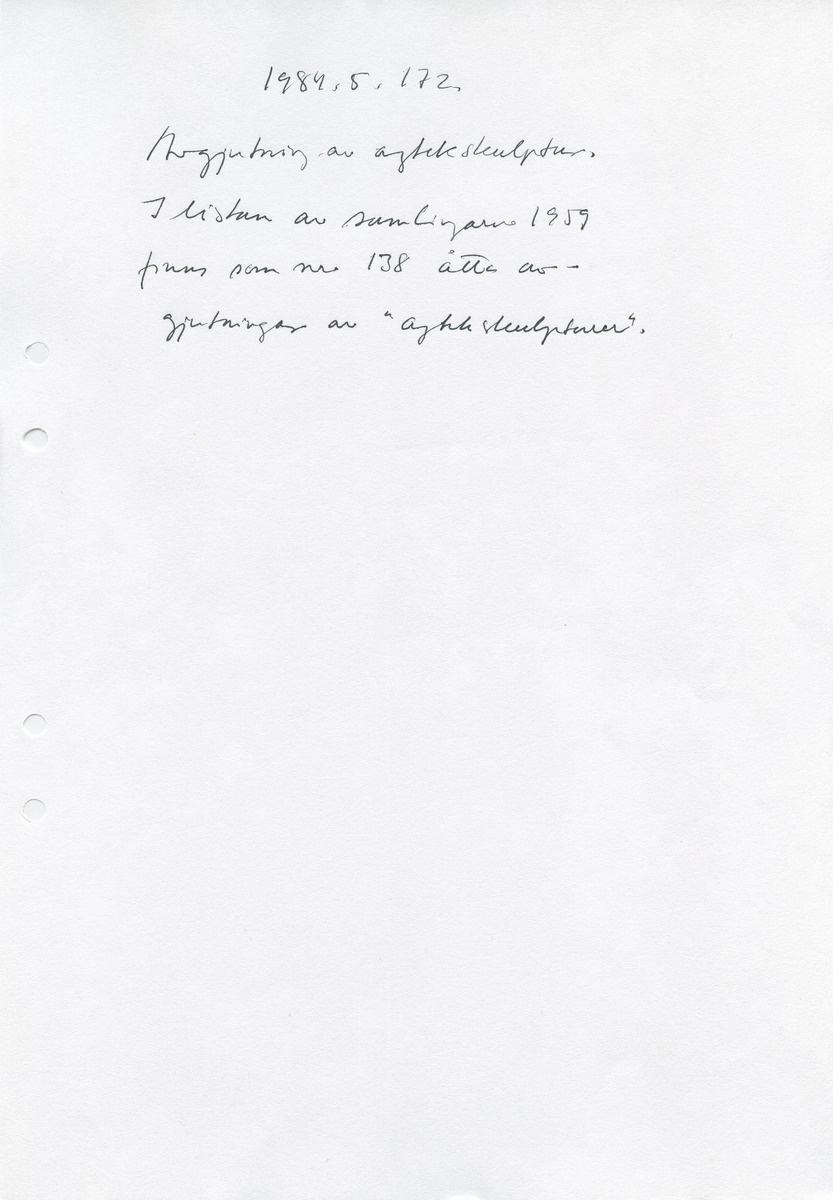 1984.5.172.
Avgjutning av aztekskulptur.
I listan av samlingarna 1959
finns som nr. 138 åtta av-
gjutningar av "aztekskulpturer".